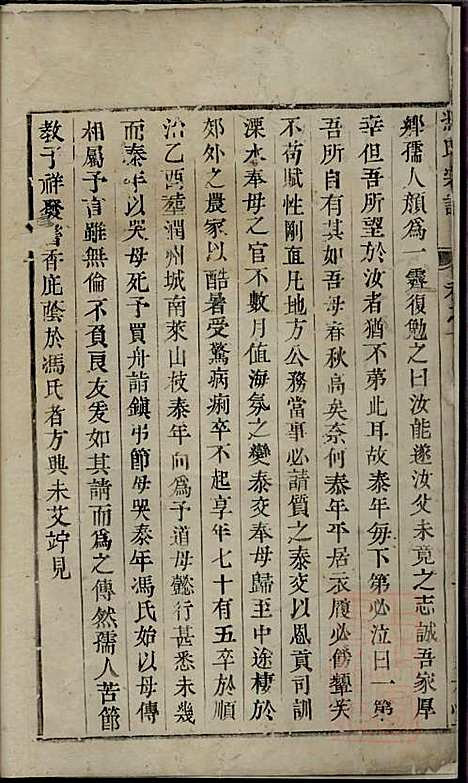 鄉孺人顔為一霽復勉之曰汝能遂汝父未竟之志誠吾家厚
幸但吾所望於汝者猶不第此耳故泰年每下第必泣曰一第
吾所自有其如吾母春秋高矣奈何泰年平居衣履必儉顰笑
不苟賦性剛直凡地方公務當事必請質之泰交以恩貢司訓
溧水奉母之官不數月值海氛之變泰交奉母歸至中途棲於
郊外之農家以酷暑受驚病痢卒不起享年七十有五卒於順
治乙酉葬潤州城南萊山枝泰年向為予道母懿行甚悉未幾
而泰年以哭母死予買舟詣鎮弔節母哭泰年馮氏始以母傳
相屬予言雖無倫不負良友爰如其請而為之傳然孺人苦節
教子祥發書香庇蔭於馮氏者方興未艾竚見
馮氏宗譜